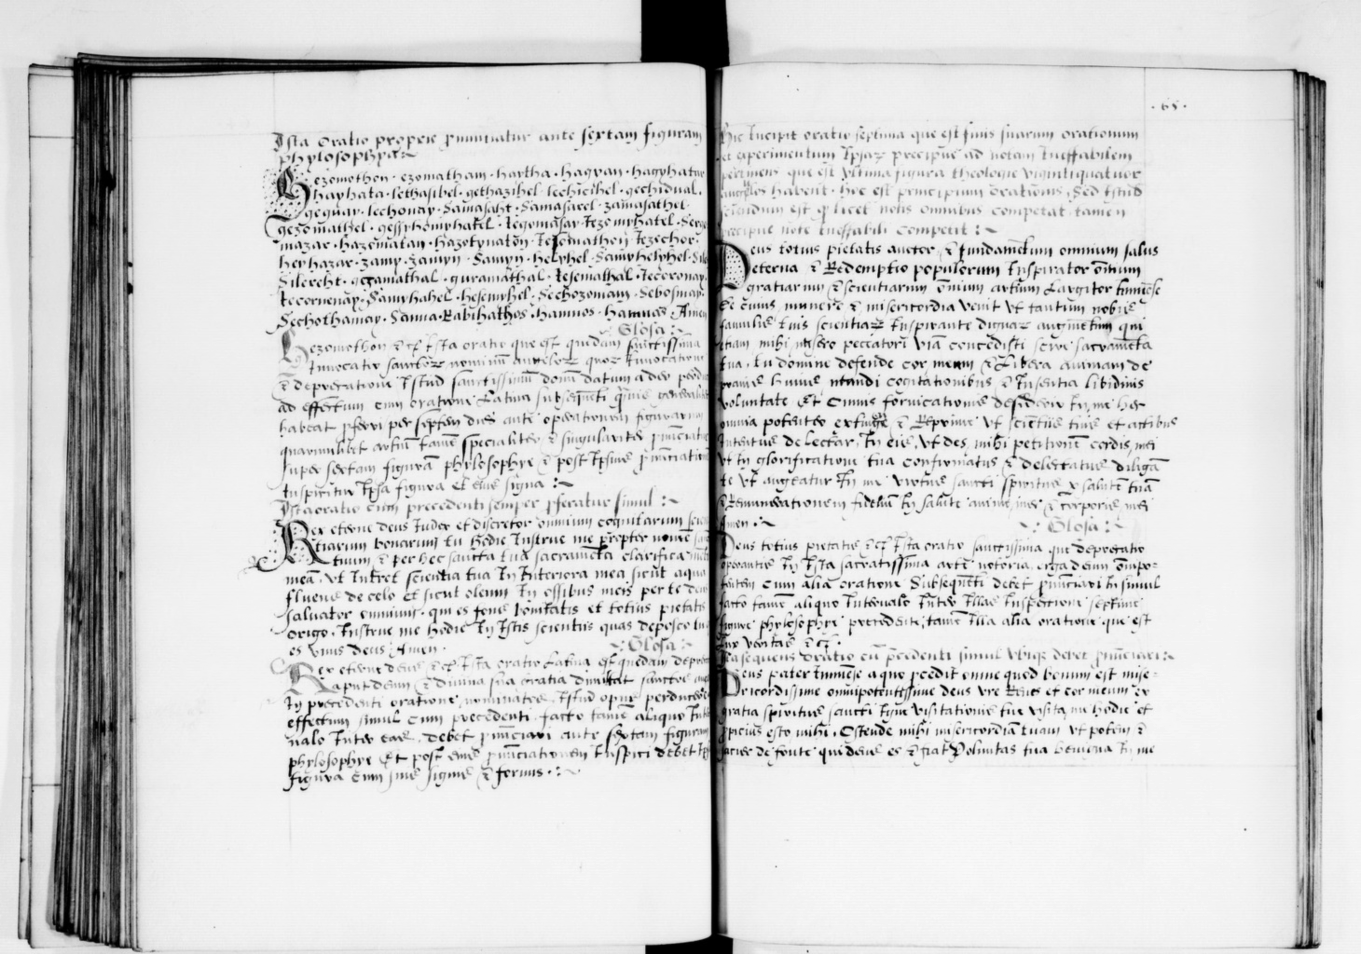 Ista oratio proprie pronunciatur ante sextam figuram
phylosophye
Gezomothon · ezomatham · haytha · hagvan · hagyhatar
hayhata · lethasibel · gethazihel · lechicihel · gechidual
gequay · lechonay · samasaht · samasarel · zamasathel
gezomathel · gessyhomyhatel · legomasay · lezomyhatel
mazar · hazomatan · hazotynaton · lesomathon · lezechor
heyhazar · zamy · zamyn · samyn · helyhel · samyhelyhel
silereht · gezamathal · guramathal · lesemathal · leceronay
lecoruenay · samyhahel · hesemyhel · sechozomam · sebosmay
sechothamay · sanna · Rabihathos · hamnos · hamnas · Amen
Glosa
ezomothon & cet ista oratio que est quedam sanctissima
invocatio sanctorum nominum angelorum quorum invocatione
& deprecatione istud sanctissimum donum datum a deo
ad effectum cum oratione latina subsequenti
habeat proferri per septem dies ante operationem figurarum
quarumlibet artium tamen specialiter & singulariter
super sextam figuram phylosophye & post ipsius pronunciationem
inspicitur ipsa figura et eius signa
Ista oratio cum precedenti semper proferatur simul
Rex eterne deus iudex et discretor omnium cognitarum
tiarum bonarum tu hodie instrue me propter nomen
tuum & per hec sancta tua sacramenta clarifica
mea · ut intret scientia tua in interiora mea sicut aqua
fluens de celo et sicut oleum in ossibus meis per te deus
salvator omnium · qui es fons bonitatis et totius pietatis
origo · Instrue me hodie in istis scientiis quas deposco
es unus deus Amen
Glosa
Rex eterne deus & cet ista oratio latina est quedam
apud deum & divina sua gratia
in precedenti oratione nominatos · istud opus perducere
effectum simul cum precedenti · facto tamen aliquo
nalo inter eas · debet pronunciari ante sextam figuram
phylosophye et post eius pronunciationem inspici debet
figura cum suis signis & formis
65
Hic incipit oratio septima que est finis suarum orationum
et experimentum ipsarum precipue ad notam ineffabilem
pertinens que est ultima figura theologie vigintiquatuor
angelos habent · Hoc est principium orationis · Sed istud
sciendum est quod licet notis omnibus competat tamen
precipue note ineffabili competit
Deus totius pietatis auctor & fundamentum omnium salus
eterna & Redemptio populorum inspirator omnium
gratiarum & scientiarum omnium artium largitor immense
de cuius munere & misericordia venit ut tantum nobis
famulis tuis scientiarum inspirante dignare augmentum qui
etiam mihi misero peccatori viam concedisti scire sacramenta
tua · tu domine defende cor meum & libera animam de
pravis huius mundi cogitationibus & in sentia libidinis
voluntate et omnis fornicationis desiderio in me hec
omnia potenter extingue & Reprime ut scientiis tuis et artibus
intentus delecter in eis · ut des mihi petitionem cordis mei
ut in glorificatione tua confirmatus & delectatus diligam
te ut augeatur in me virtus sancti spiritus per salutem tuam
& Remunerationem fidelium in salute anime mee & corporis mei
Amen
Glosa
Deus totius pietatis & cet ista oratio sanctissima que deprecatio
operantis in ista sacratissima arte notoria erga deum omnipo-
tentem cum alia oratione subsequenti debet pronunciari in simul
facto tamen aliquo intervalo inter illas inspectione septime
figure phylosophye precedente tamen illa alia oratione que est
lux veritas & cet
Ista sequens oratio cum precedenti simul ubique debet pronunciari
Deus pater immense a quo procedit omne quod bonum est mise-
ricordissime omnipotentissime deus ure Renes et cor meum ex
gratia spiritus sancti igne visitationis tue visita me hodie et
propicius esto mihi · Ostende mihi misericordiam tuam ut potem &
satier de fonte qui deus es & fiat voluntas tua benigna in me